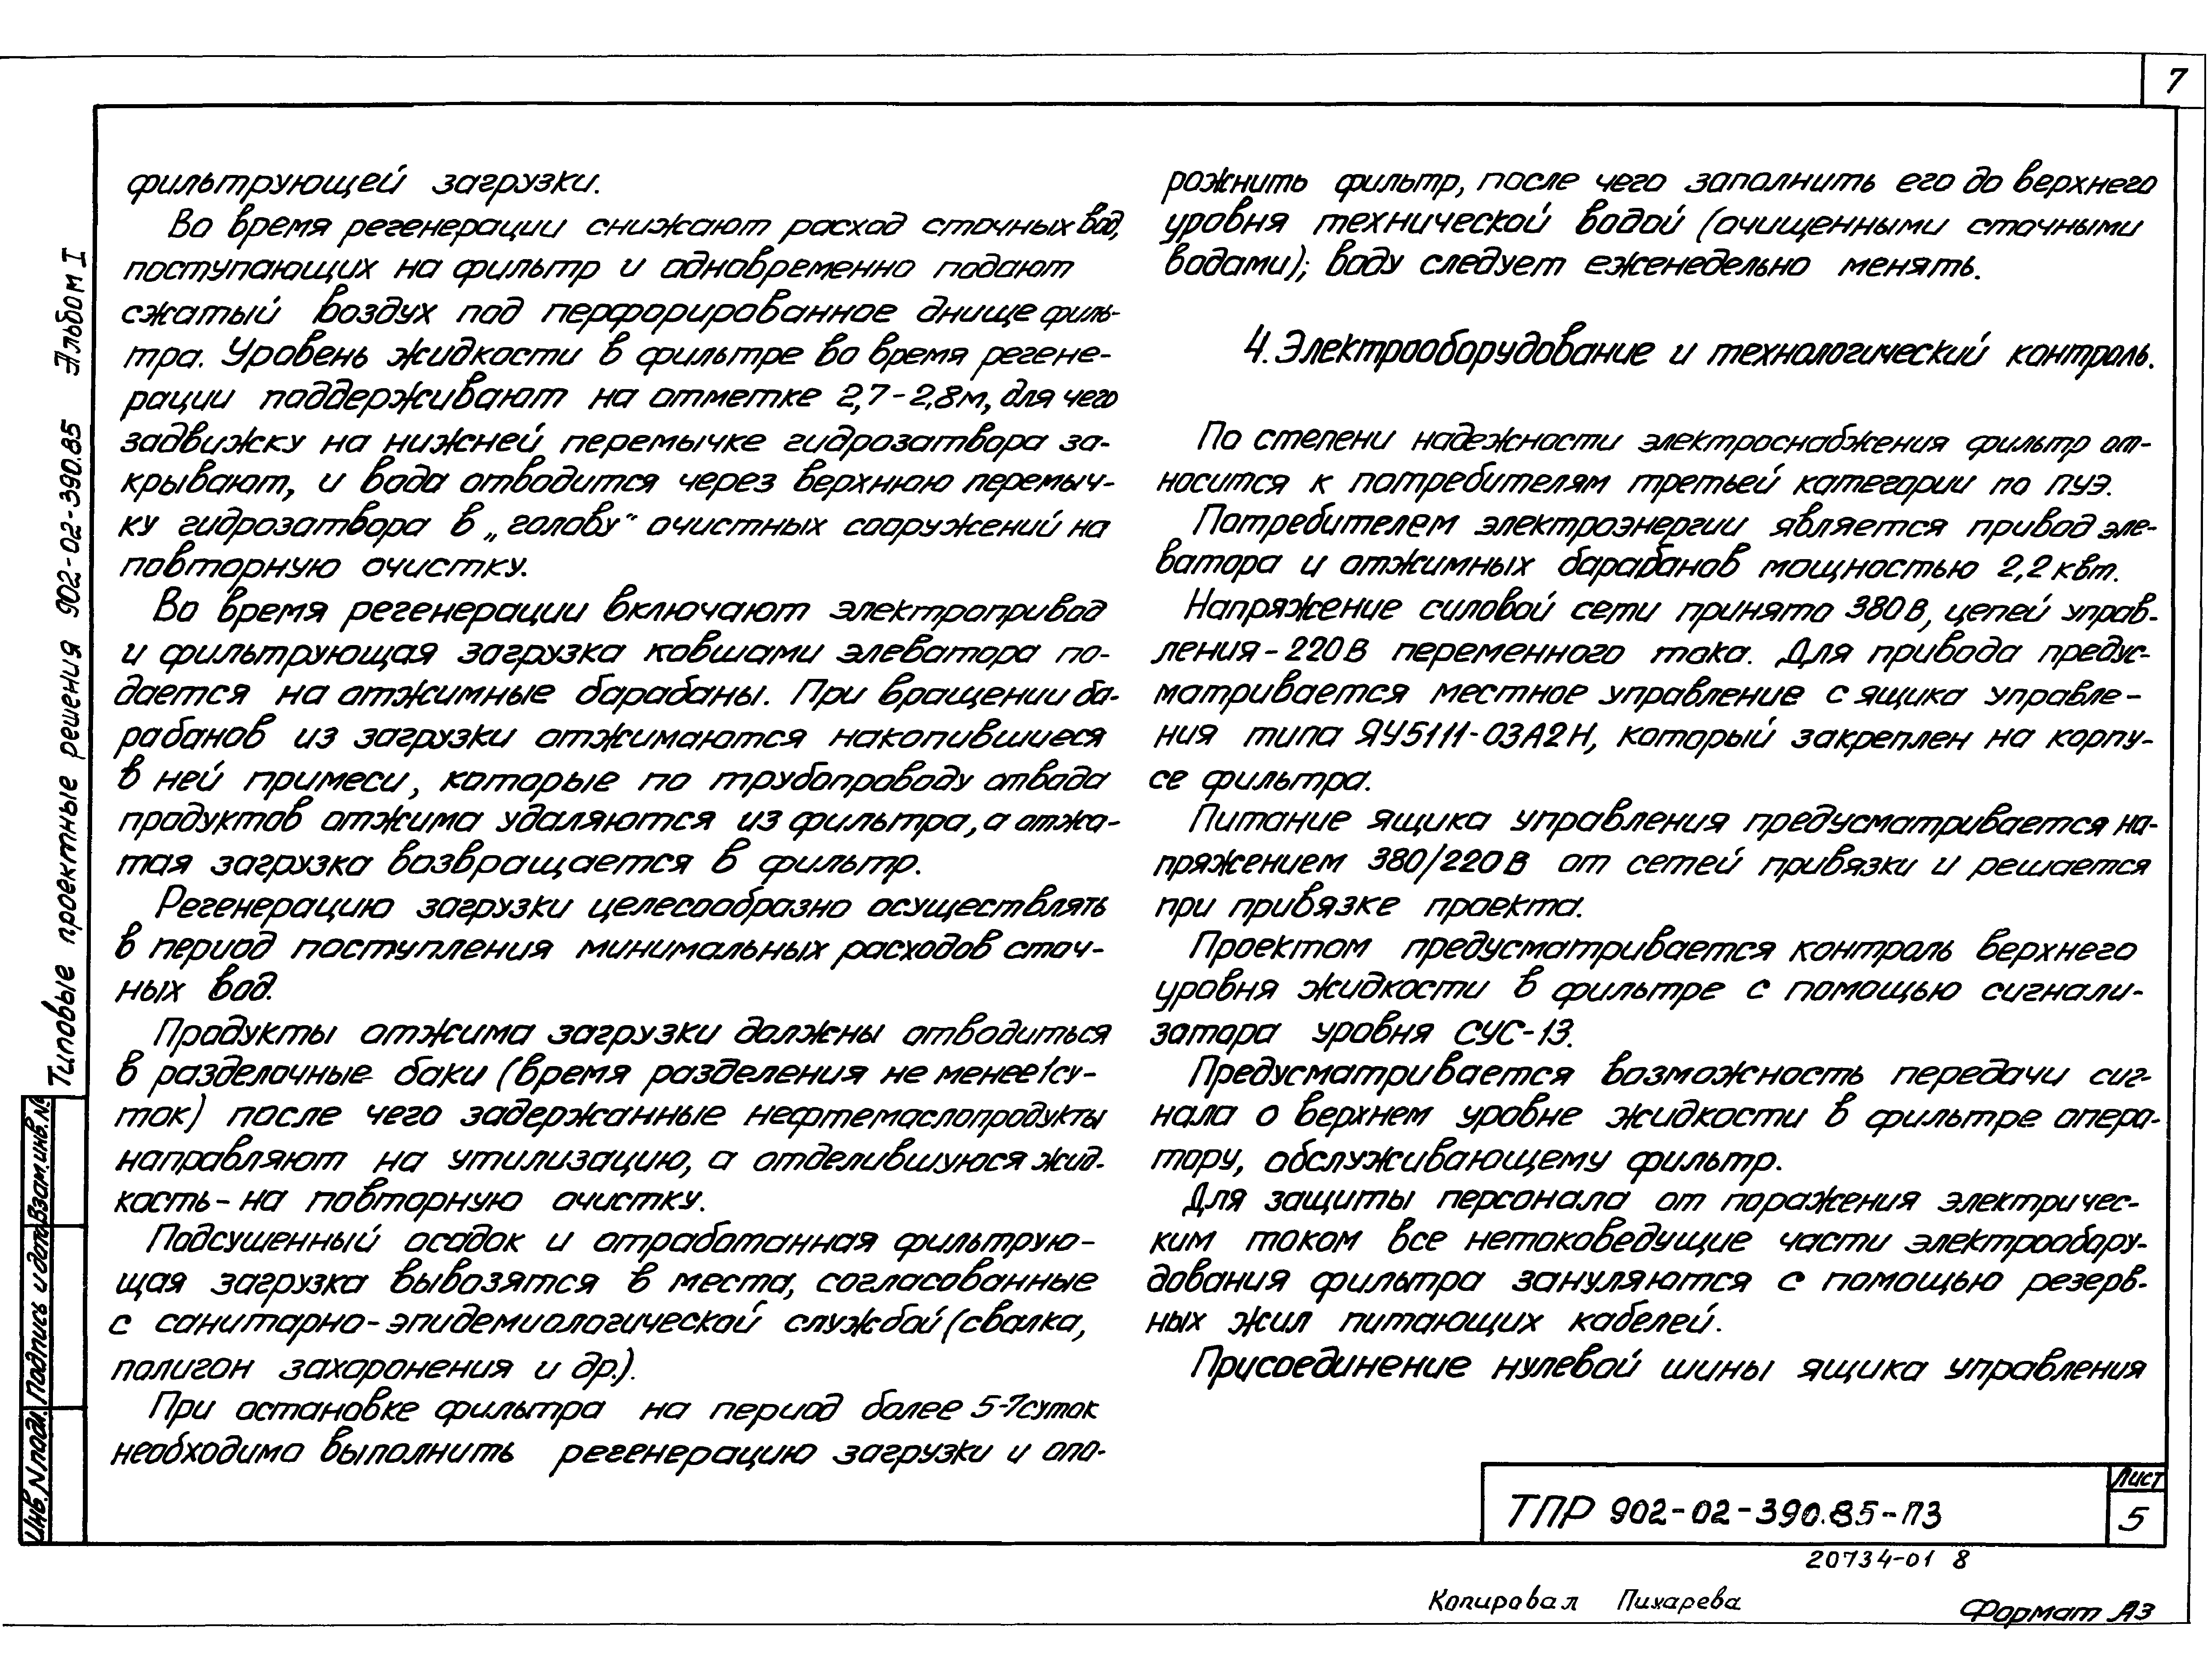 7
фильтрующей загрузки.
Во время регенерации снижают расход сточных вод,
поступающих на фильтр и одновременно подают
сжатый воздух под перфорированное днище филь-
тра. Уровень жидкости в фильтре во время регене-
рации поддерживают на отметке 2,7-2,8м, для чего
задвижку на нижней перемычке гидрозатвора за-
крывают, и вода отводится через верхнюю перемыч-
ку гидрозатвора в „голову“ очистных сооружений на
повторную очистку.
Во время регенерации включают электропривод
и фильтрующая загрузка ковшами элеватора по-
дается на отжимные барабаны. При вращении ба-
рабанов из загрузки отжимаются накопившиеся
в ней примеси, которые по трубопроводу отвода
продуктов отжима удаляются из фильтра, а отжа-
тая загрузка возвращается в фильтр.
Регенерацию загрузки целесообразно осуществлять
в период поступления минимальных расходов сточ-
ных вод.
Продукты отжима загрузки должны отводиться
в разделочные баки (время разделения не менее 1 су-
ток) после чего задержанные нефтемаслопродукты
направляют на утилизацию, а отделившуюся жид-
кость - на повторную очистку.
Подсушенный осадок и отработанная фильтрую-
щая загрузка вывозятся в места, согласованные
с санитарно-эпидемиологической службой (свалка,
полигон захоронения и др.).
При остановке фильтра на период более 5-7 суток
необходимо выполнить регенерацию загрузки и опо-
рожнить фильтр, после чего заполнить его до верхнего
уровня технической водой (очищенными сточными
водами); воду следует еженедельно менять.
4. Электрооборудование и технологический контроль.
По степени надежности электроснабжения фильтр от-
носится к потребителям третьей категории по ПУЭ.
Потребителем электроэнергии является привод эле-
ватора и отжимных барабанов мощностью 2,2 квт.
Напряжение силовой сети принято 380 В, цепей управ-
ления - 220 В переменного тока. Для привода предус-
матривается местное управление с ящика управле-
ния типа ЯУ5111-03А2Н, который закреплен на корпу-
се фильтра.
Питание ящика управления предусматривается на-
пряжением 380/220 В от сетей привязки и решается
при привязке проекта.
Проектом предусматривается контроль верхнего
уровня жидкости в фильтре с помощью сигнали-
затора уровня СУС-13.
Предусматривается возможность передачи сиг-
нала о верхнем уровне жидкости в фильтре опера-
тору, обслуживающему фильтр.
Для защиты персонала от поражения электричес-
ким током все нетоковедущие части электрообору-
дования фильтра зануляются с помощью резерв-
ных жил питающих кабелей.
Присоединение нулевой шины ящика управления
Типовые проектные решения 902-02-390.85 Альбом I
Взам.инв.№
Подпись и дата
Инв.N подл.
ТПР 902-02-390.85-ПЗ
Лист
5
20734-01 8
Копировал Пихарева
Формат А3